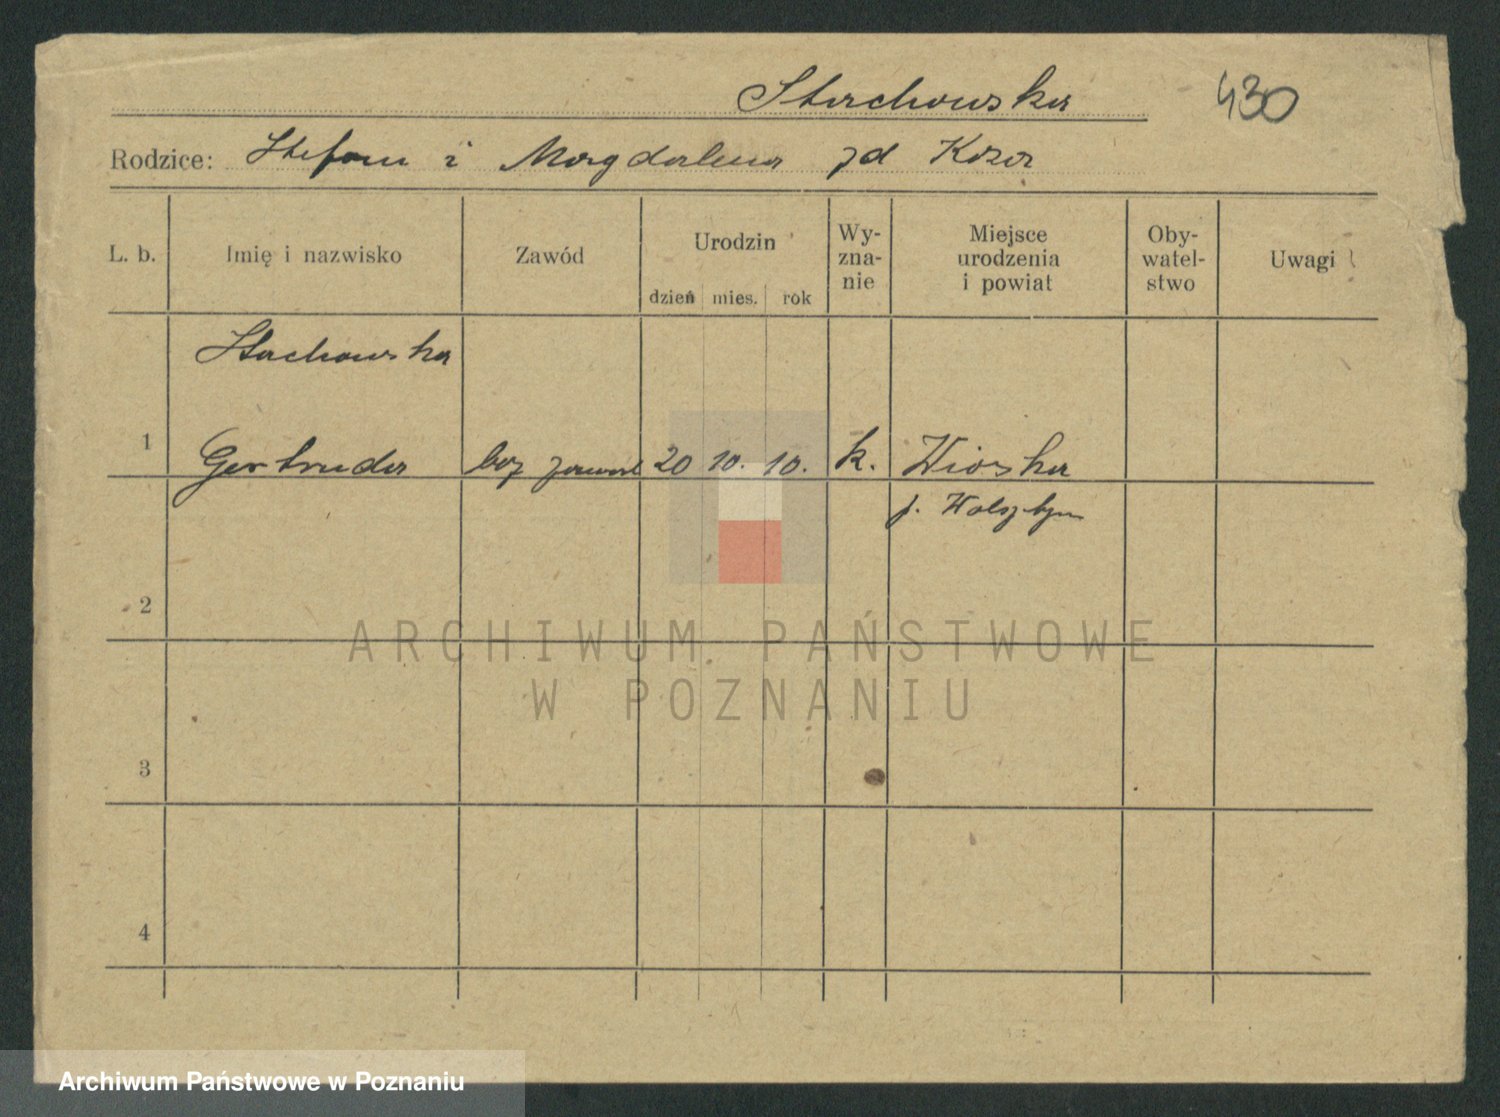 Stachowska 430
Rodzice: Stefan i Magdalena zd Koza
L. b. Imię i nazwisko Zawód Urodzin dzień mies. rok Wy-zna-nie Miejsce urodzenia i powiat Oby-watel-stwo Uwagi
Stachowska
1 Gertruda bez zawod 20 10. 10. k. Wioska
p. Wolsztyn
2
3
4
ARCHIWUM PAŃSTWOWE
W POZNANIU
Archiwum Państwowe w Poznaniu